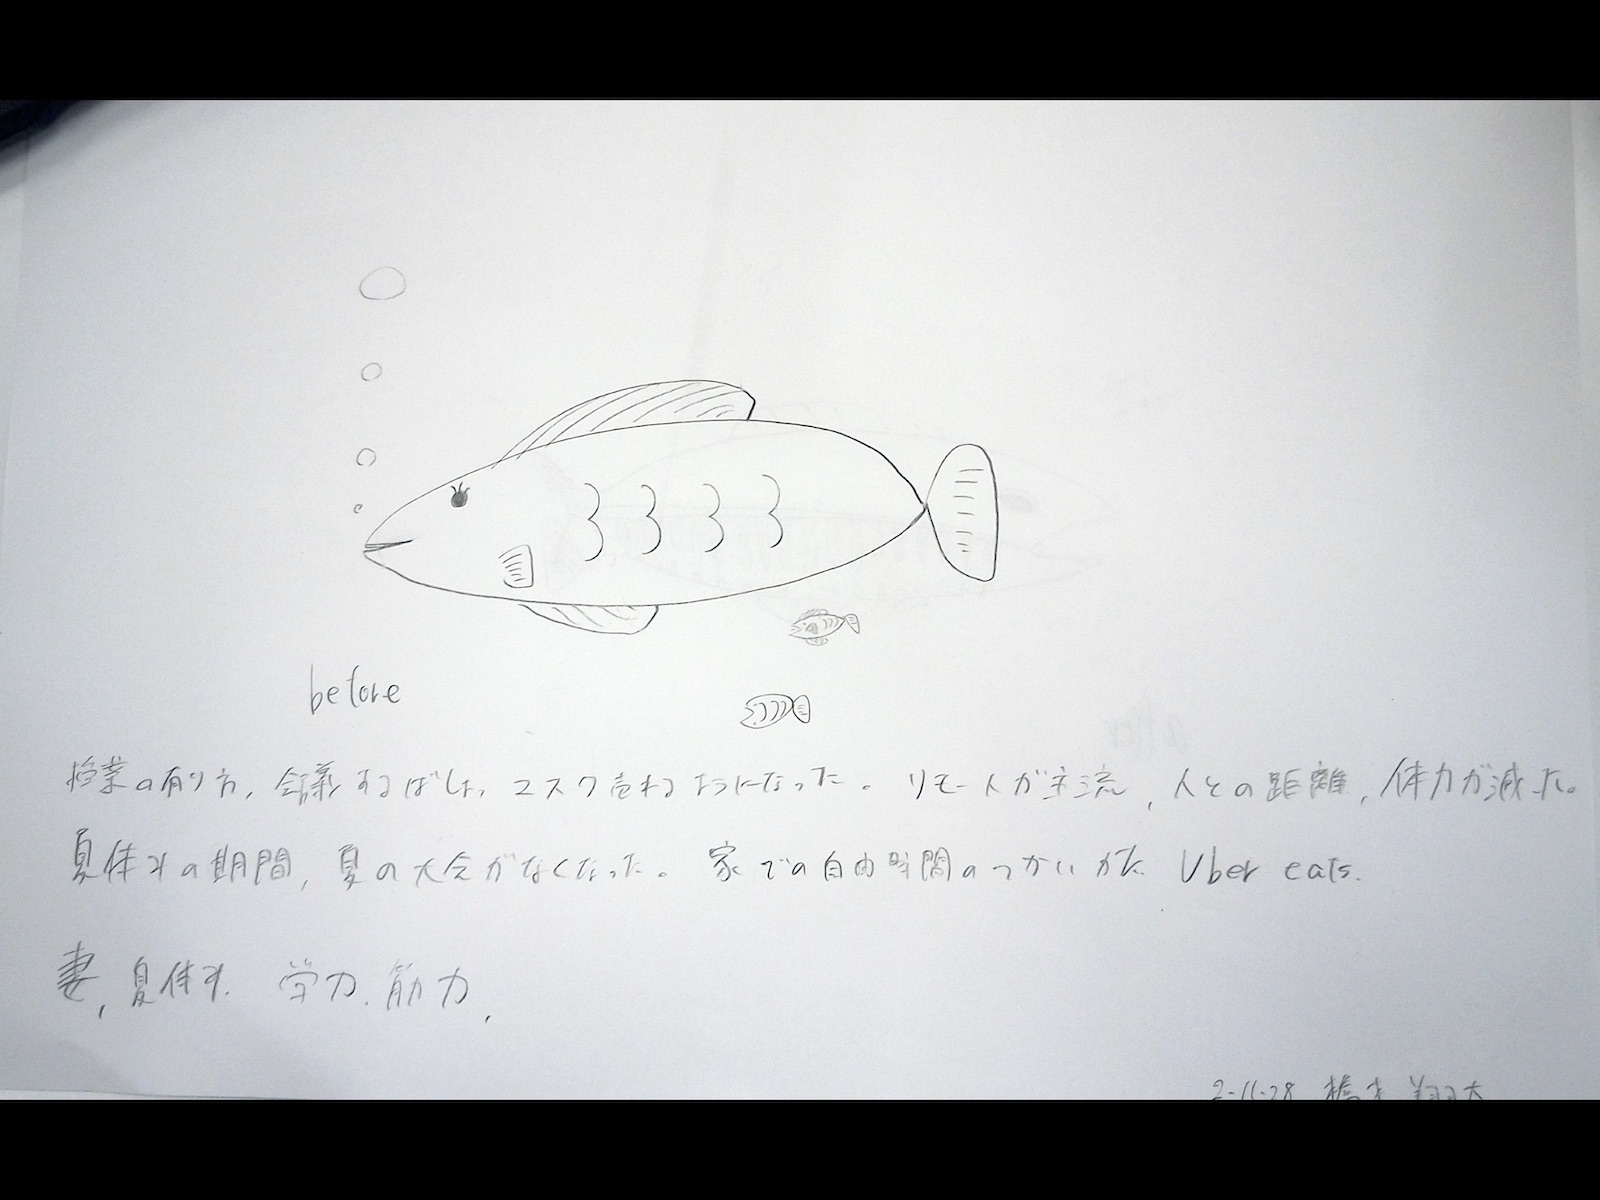 before
授業の有り方, 会議するばしょ, マスク売れるようになった。 リモートが主流, 人との距離, 体力が減った。
夏休みの期間, 夏の大会がなくなった。 家での自由時間のつかいかた Uber eats.
妻, 夏休み. 学力. 筋力,
2-11-28